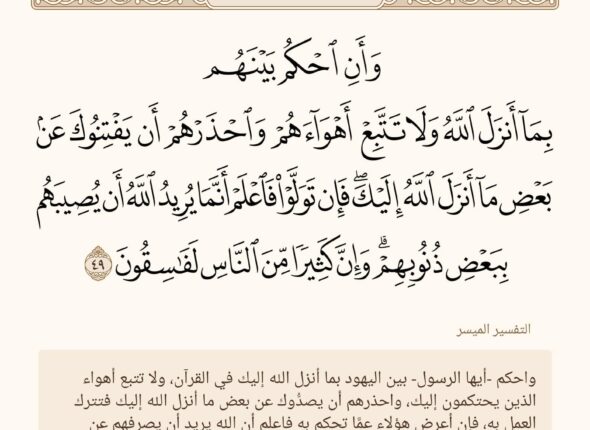 وَأَنِ ٱحۡكُم بَيۡنَهُم
بِمَآ أَنزَلَ ٱللَّهُ وَلَا تَتَّبِعۡ أَهۡوَآءَهُمۡ وَٱحۡذَرۡهُمۡ أَن يَفۡتِنُوكَ عَنۢ
بَعۡضِ مَآ أَنزَلَ ٱللَّهُ إِلَيۡكَۖ فَإِن تَوَلَّوۡاْ فَٱعۡلَمۡ أَنَّمَا يُرِيدُ ٱللَّهُ أَن يُصِيبَهُم
بِبَعۡضِ ذُنُوبِهِمۡۗ وَإِنَّ كَثِيرٗا مِّنَ ٱلنَّاسِ لَفَٰسِقُونَ ٤٩
التفسير الميسر
واحكم -أيها الرسول- بين اليهود بما أنزل الله إليك في القرآن، ولا تتبع أهواء
الذين يحتكمون إليك، واحذرهم أن يصدُّوك عن بعض ما أنزل الله إليك فتترك
العمل به، فإن أعرض هؤلاء عمَّا تحكم به فاعلم أن الله يريد أن يصرفهم عن